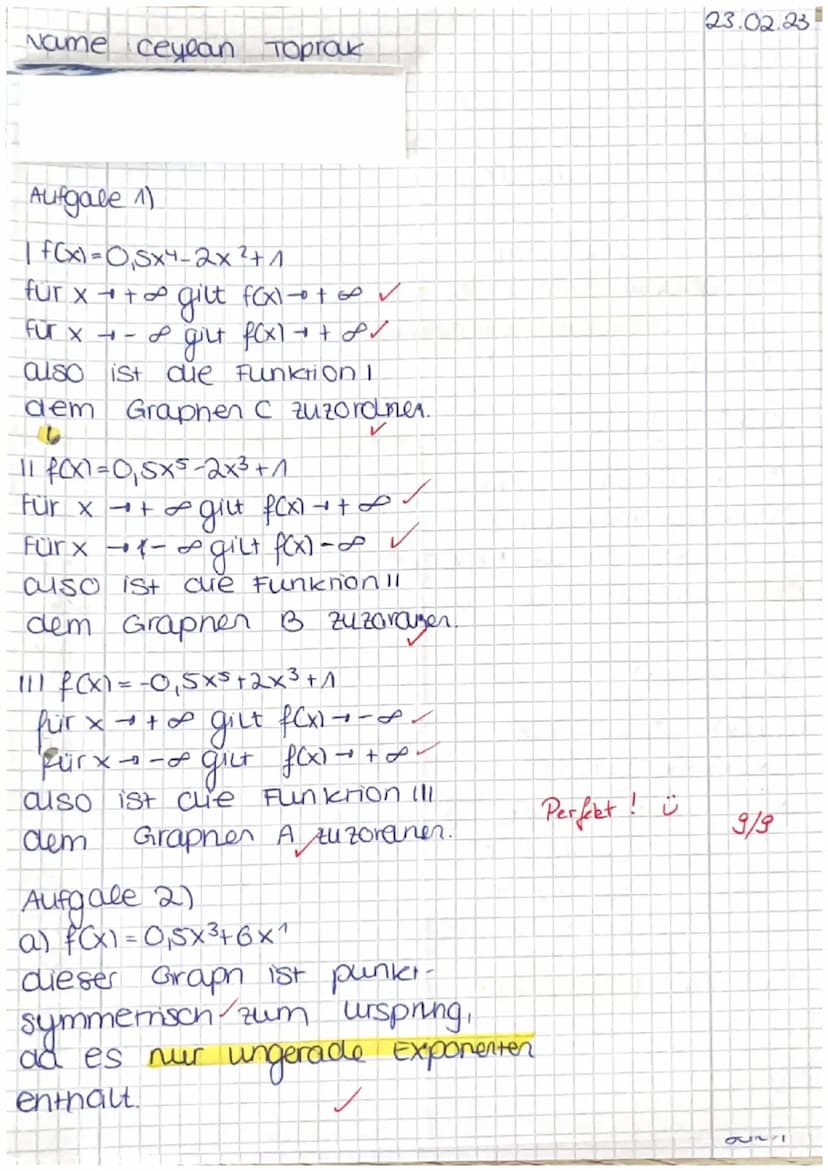 23.02.23
Name Ceylan Toprak
Aufgabe 1)
I f(x)=0,5x⁴-2x²+1
für x→+∞ gilt f(x)→+∞ ✓
für x→-∞ gilt f(x)→+∞ ✓
also ist die Funktion I
dem Graphen C zuzordnen. ✓
II f(x)=0,5x⁵-2x³+1
Für x→+∞ gilt f(x)→+∞ ✓
Für x→-∞ gilt f(x)-∞ ✓
also ist die Funktion II
dem Graphen B ✓
III f(x)=-0,5x⁵+2x³+1
für x→+∞ gilt f(x)→-∞ ✓
Für x→-∞ gilt f(x)→+∞ ✓
also ist die Funktion III
dem Graphen A zuzordnen. ✓
Perfekt! ü 9/9
Aufgabe 2)
a) f(x)=0,5x³+6x¹
dieser Graph ist punkt-
symmetrisch ✓ zum Ursprung,
da es nur ungerade Exponenten
enthält. ✓